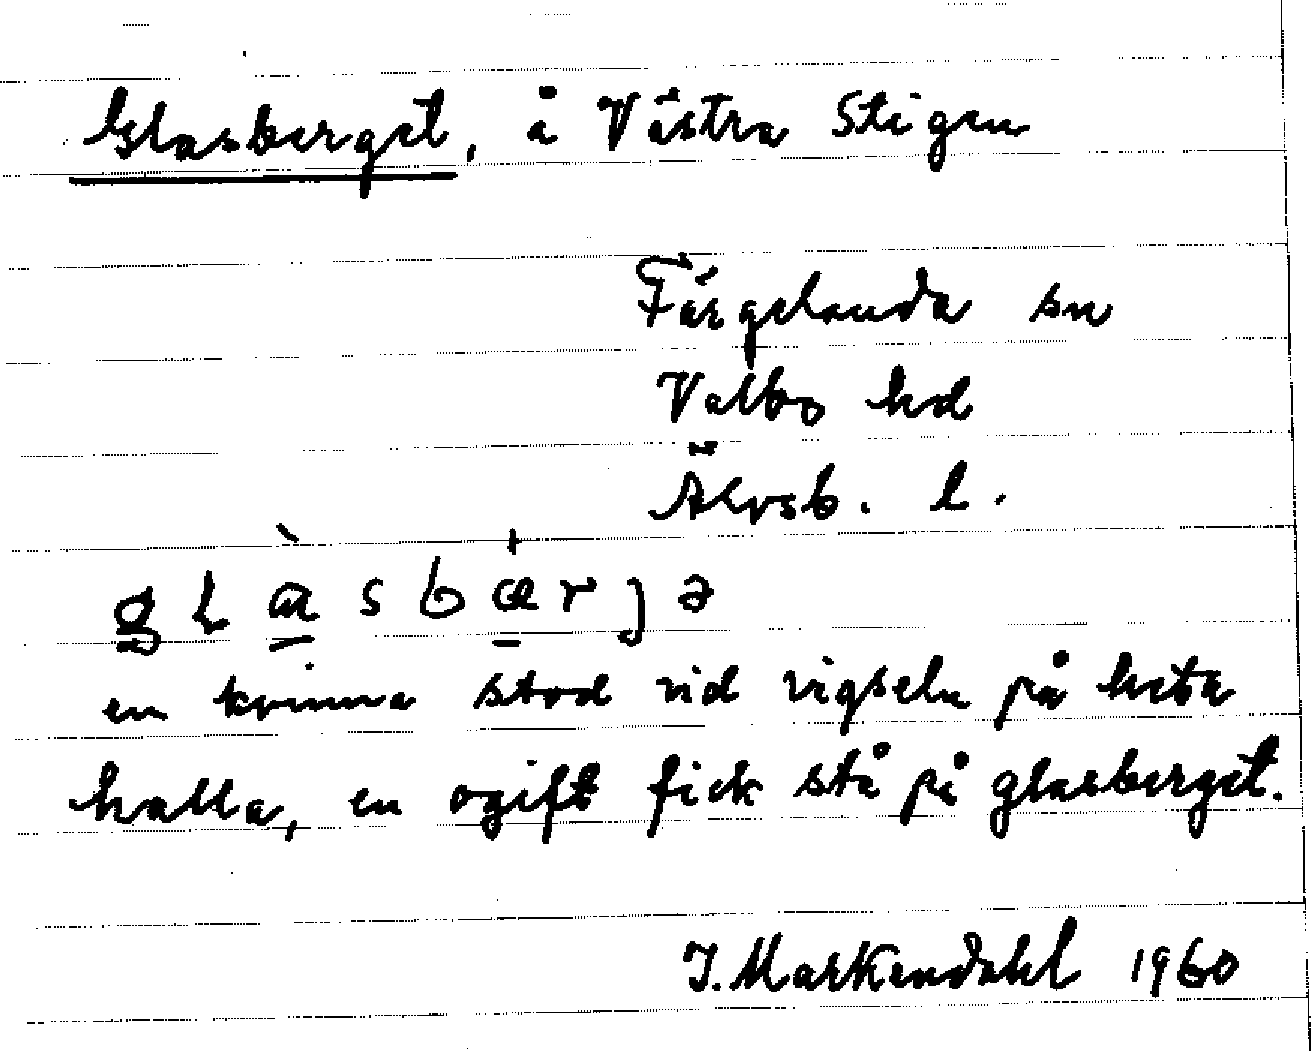 Glasberget, å Västra Stigen
Färgelanda sn
Valbo hd
Älvsb. l.
en kvinna stod vid vigseln på heta
halla, en ogift fick stå på glasberget.
J. Markendahl 1960